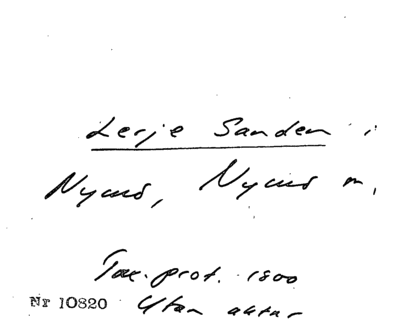 Lerje Sanden i
Nymö, Nymö m.
Tax. prot. 1800
Nr 10820 Utan aktnr